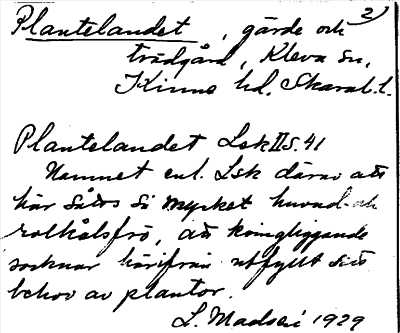 2)
Plantelandet, gärde och
trädgård, Kleva sn,
Kinne hd, Skarab. l.
Plantelandet Lsk II s. 41
Namnet enl. Lsk därav att
här såtos så mycket huvud- och
rotkålsfrö, att kringliggande
socknar härifrån utfyllt sitt
behov av plantor.
L. Madsén 1929